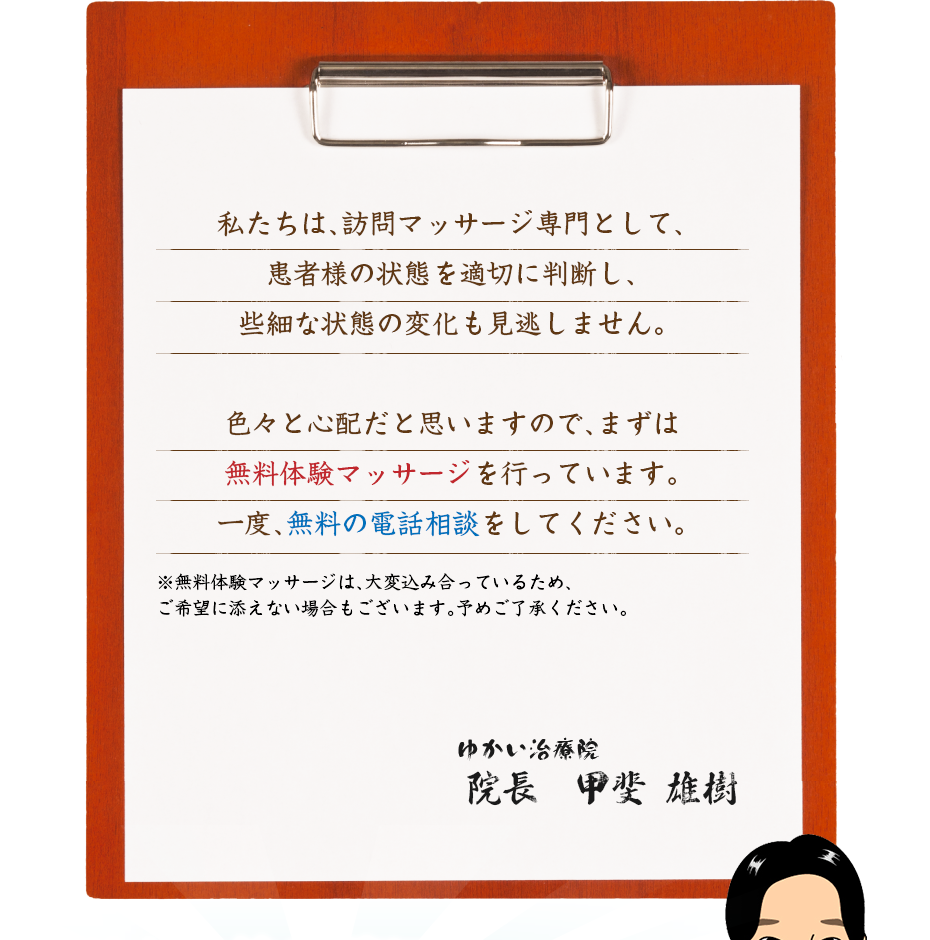 私たちは、訪問マッサージ専門として、
患者様の状態を適切に判断し、
些細な状態の変化も見逃しません。
色々と心配だと思いますので、まずは
無料体験マッサージを行っています。
一度、無料の電話相談をしてください。
※無料体験マッサージは、大変込み合っているため、
ご希望に添えない場合もございます。予めご了承ください。
ゆかい治療院
院長　甲斐 雄樹